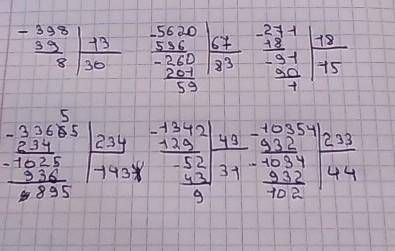 -398
39 13
8 30
-5620
536 67
-260 83
201
59
-271 18
18
-91 15
90
1
5
-33665
234 234
-1025
936 143
895
-1342
129 43
-52 31
43
9
-10354
932 233
-1034 44
932
102